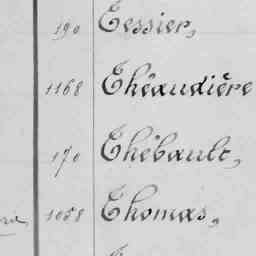 190 Tessier,
1168 Théaudière
170 Thébault,
1058 Thomas,